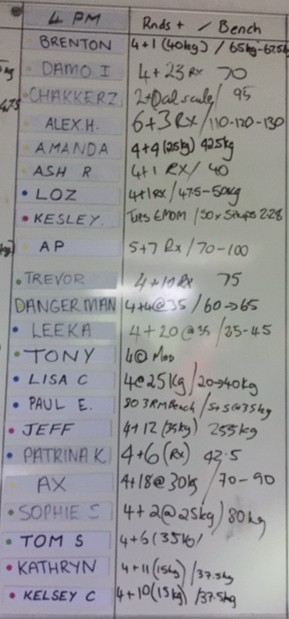 4 PM Rnds + / Bench
BRENTON 4+1 (40kg) / 65kg-67.5kg
DAMO I 4+23 Rx 70
CHAKKERZ 2+0 / 95
ALEX.H. 6+3 Rx / 110-120-130
AMANDA 4+4 (25kg) 42.5kg
ASH R 4+1 RX / 40
LOZ 4+1 RX / 47.5-50kg
KESLEY. EMOM / 50x 2:28
AP 5+7 Rx / 70-100
TREVOR 4+19 Rx 75
DANGERMAN 4+4@35 / 60→65
LEEKA 4+20@35 / 35-45
TONY 4@ Mod
LISA C 4@25kg / 20→40kg
PAUL E. 80 3RM Bench / 5x5@35kg
JEFF 4+12 (35kg)
PATRINA K 4+6 (Rx) 42.5
AX 4+18@30kg / 70-90
SOPHIE S 4+2@25kg) 80kg
TOM S 4+6 (35kg)
KATHRYN 4+11 (15kg) / 37.5kg
KELSEY C 4+10 (15kg) / 37.5kg